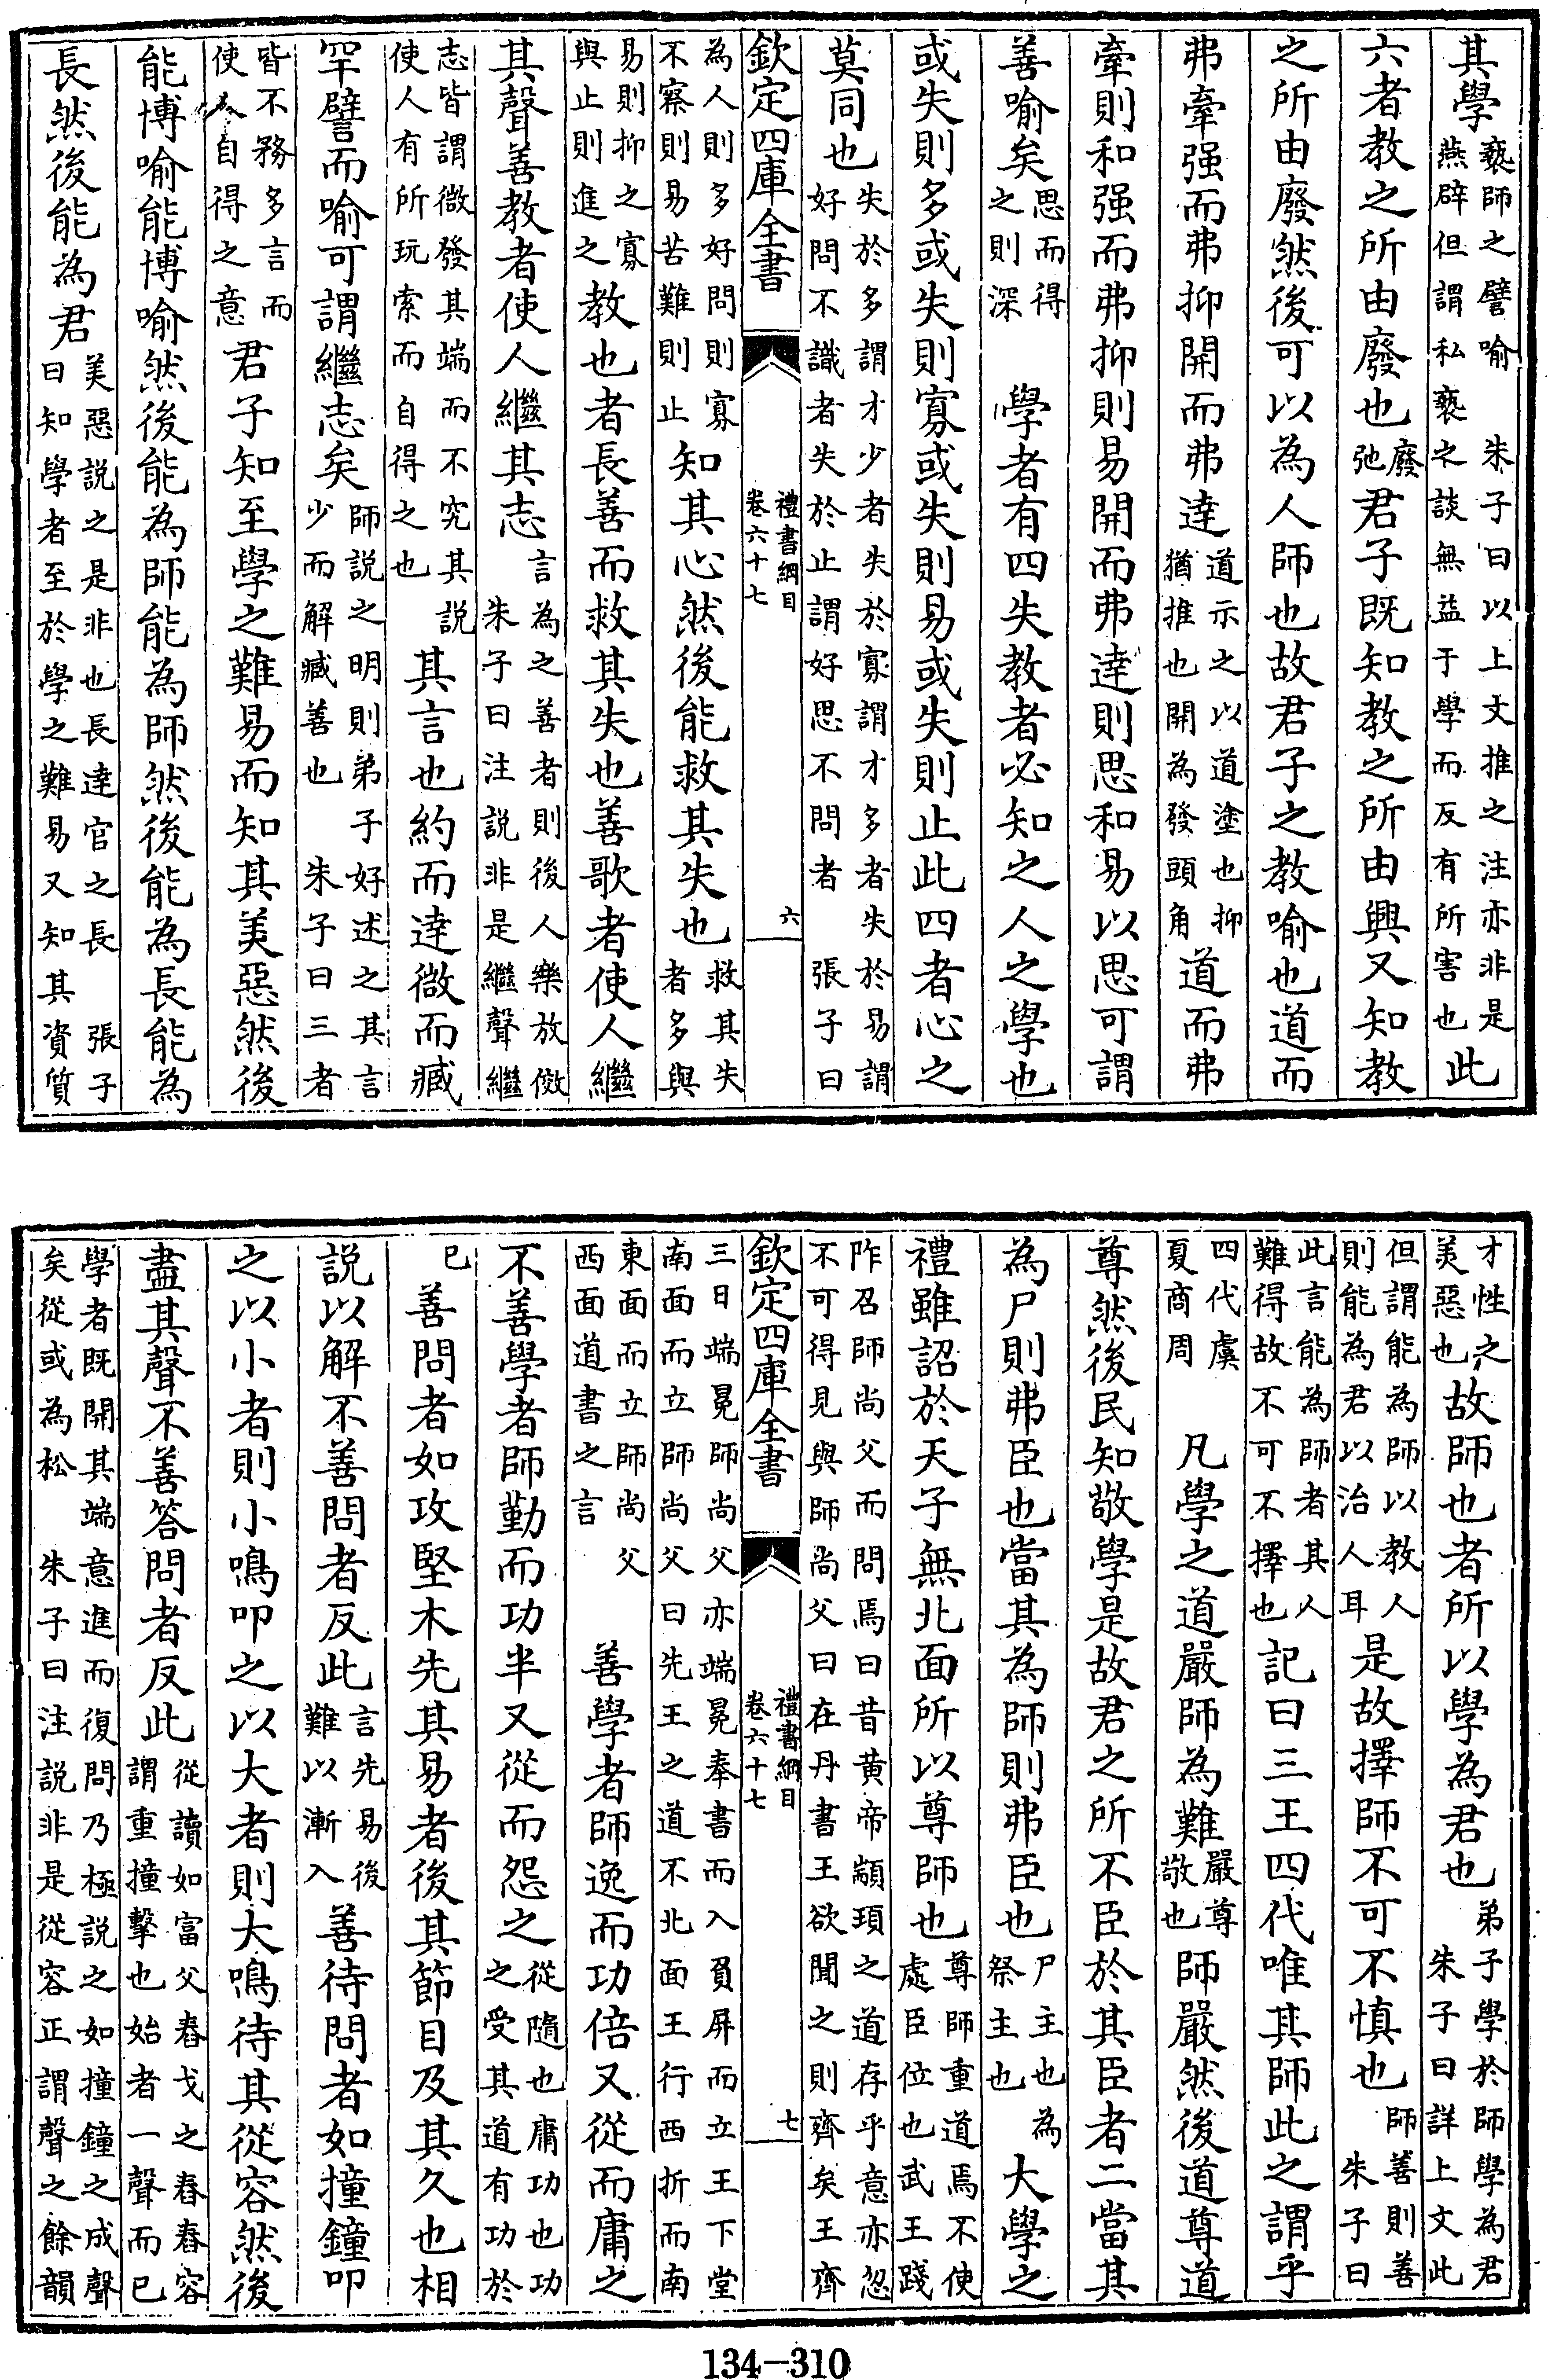 其學褻師之譬喻　朱子曰以上文推之注亦非是
燕辟但謂私褻之談無益于學而反有所害也此
六者教之所由廢也廢弛君子既知教之所由興又知教
之所由廢然後可以為人師也故君子之教喻也道而
弗牽强而弗抑開而弗達道示之以道塗也抑猶推也開為發頭角道而弗
牽則和强而弗抑則易開而弗達則思和易以思可謂
善喻矣思而得之則深　學者有四失教者必知之人之學也
或失則多或失則寡或失則易或失則止此四者心之
莫同也失於多謂才少者失於寡謂才多者失於易謂
好問不識者失於止謂好思不問者　張子曰
欽定四庫全書　禮書綱目　卷六十七　六
為人則多好問則寡
不察則易苦難則止知其心然後能救其失也救其失者多與
易則抑之寡
與止則進之教也者長善而救其失也善歌者使人繼
其聲善教者使人繼其志言為之善者則後人樂放傚
朱子曰注説非是繼聲繼
志皆謂微發其端而不究其説
使人有所玩索而自得之也其言也約而達微而臧
罕譬而喻可謂繼志矣師説之明則弟子好述之其言
少而解臧善也　朱子曰三者
皆不務多言而
使人自得之意君子知至學之難易而知其美惡然後
能博喻能博喻然後能為師能為師然後能為長能為
長然後能為君美惡説之是非也長達官之長　張子
曰知學者至於學之難易又知其資質
才性之
美惡也故師也者所以學為君也弟子學於師學為君
朱子曰詳上文此
但謂能為師以教人
則能為君以治人耳是故擇師不可不慎也師善則善
朱子曰
此言能為師者其人
難得故不可不擇也記曰三王四代唯其師此之謂乎
四代虞
夏商周　凡學之道嚴師為難嚴尊敬也師嚴然後道尊道
尊然後民知敬學是故君之所不臣於其臣者二當其
為尸則弗臣也當其為師則弗臣也尸主也為祭主也　大學之
禮雖詔於天子無北面所以尊師也尊師重道焉不使
處臣位也武王踐
阼召師尚父而問焉曰昔黄帝顓頊之道存乎意亦忽
不可得見與師尚父曰在丹書王欲聞之則齊矣王齊
欽定四庫全書　禮書綱目　卷六十七　七
三日端冕師尚父亦端冕奉書而入負屏而立王下堂
南面而立師尚父曰先王之道不北面王行西折而南
東面而立師尚父
西面道書之言　善學者師逸而功倍又從而庸之
不善學者師勤而功半又從而怨之從隨也庸功也功
之受其道有功於
己　善問者如攻堅木先其易者後其節目及其久也相
説以解不善問者反此言先易後難以漸入善待問者如撞鐘叩
之以小者則小鳴叩之以大者則大鳴待其從容然後
盡其聲不善答問者反此從讀如富父舂戈之舂舂容
謂重撞擊也始者一聲而已
學者既開其端意進而復問乃極説之如撞鐘之成聲
矣從或為松　朱子曰注説非是從容正謂聲之餘韻
134—310